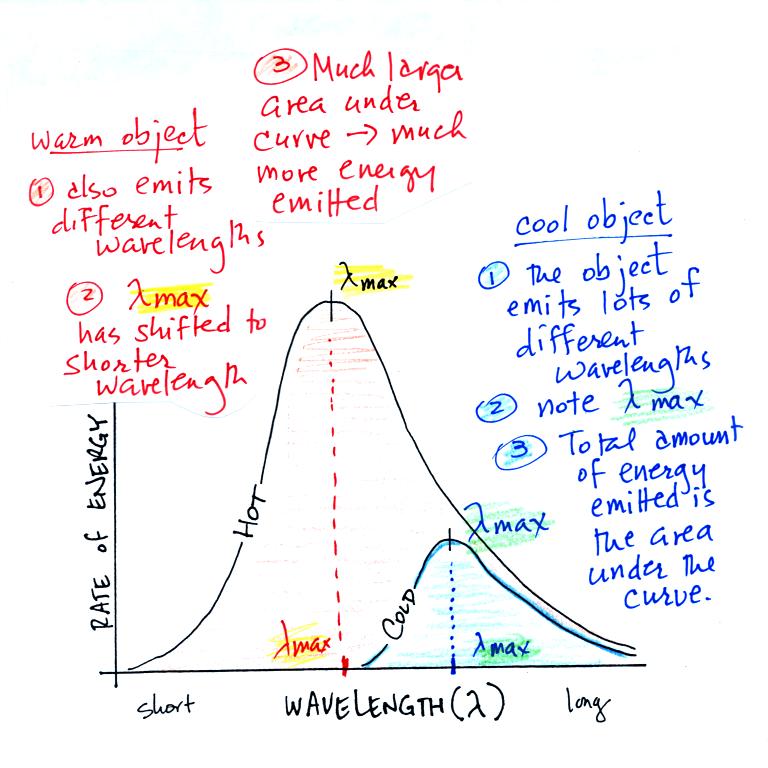 warm object
① also emits
different
wavelengths
② λmax
has shifted to
shorter
wavelength
③ Much larger
area under
curve → much
more energy
emitted
cool object
① the object
emits lots of
different
wavelengths
② note λmax
③ Total amount
of energy
emitted is
the area
under the
curve.
λmax
HOT
λmax
COLD
λmax
λmax
RATE of ENERGY
short
WAVELENGTH (λ)
long